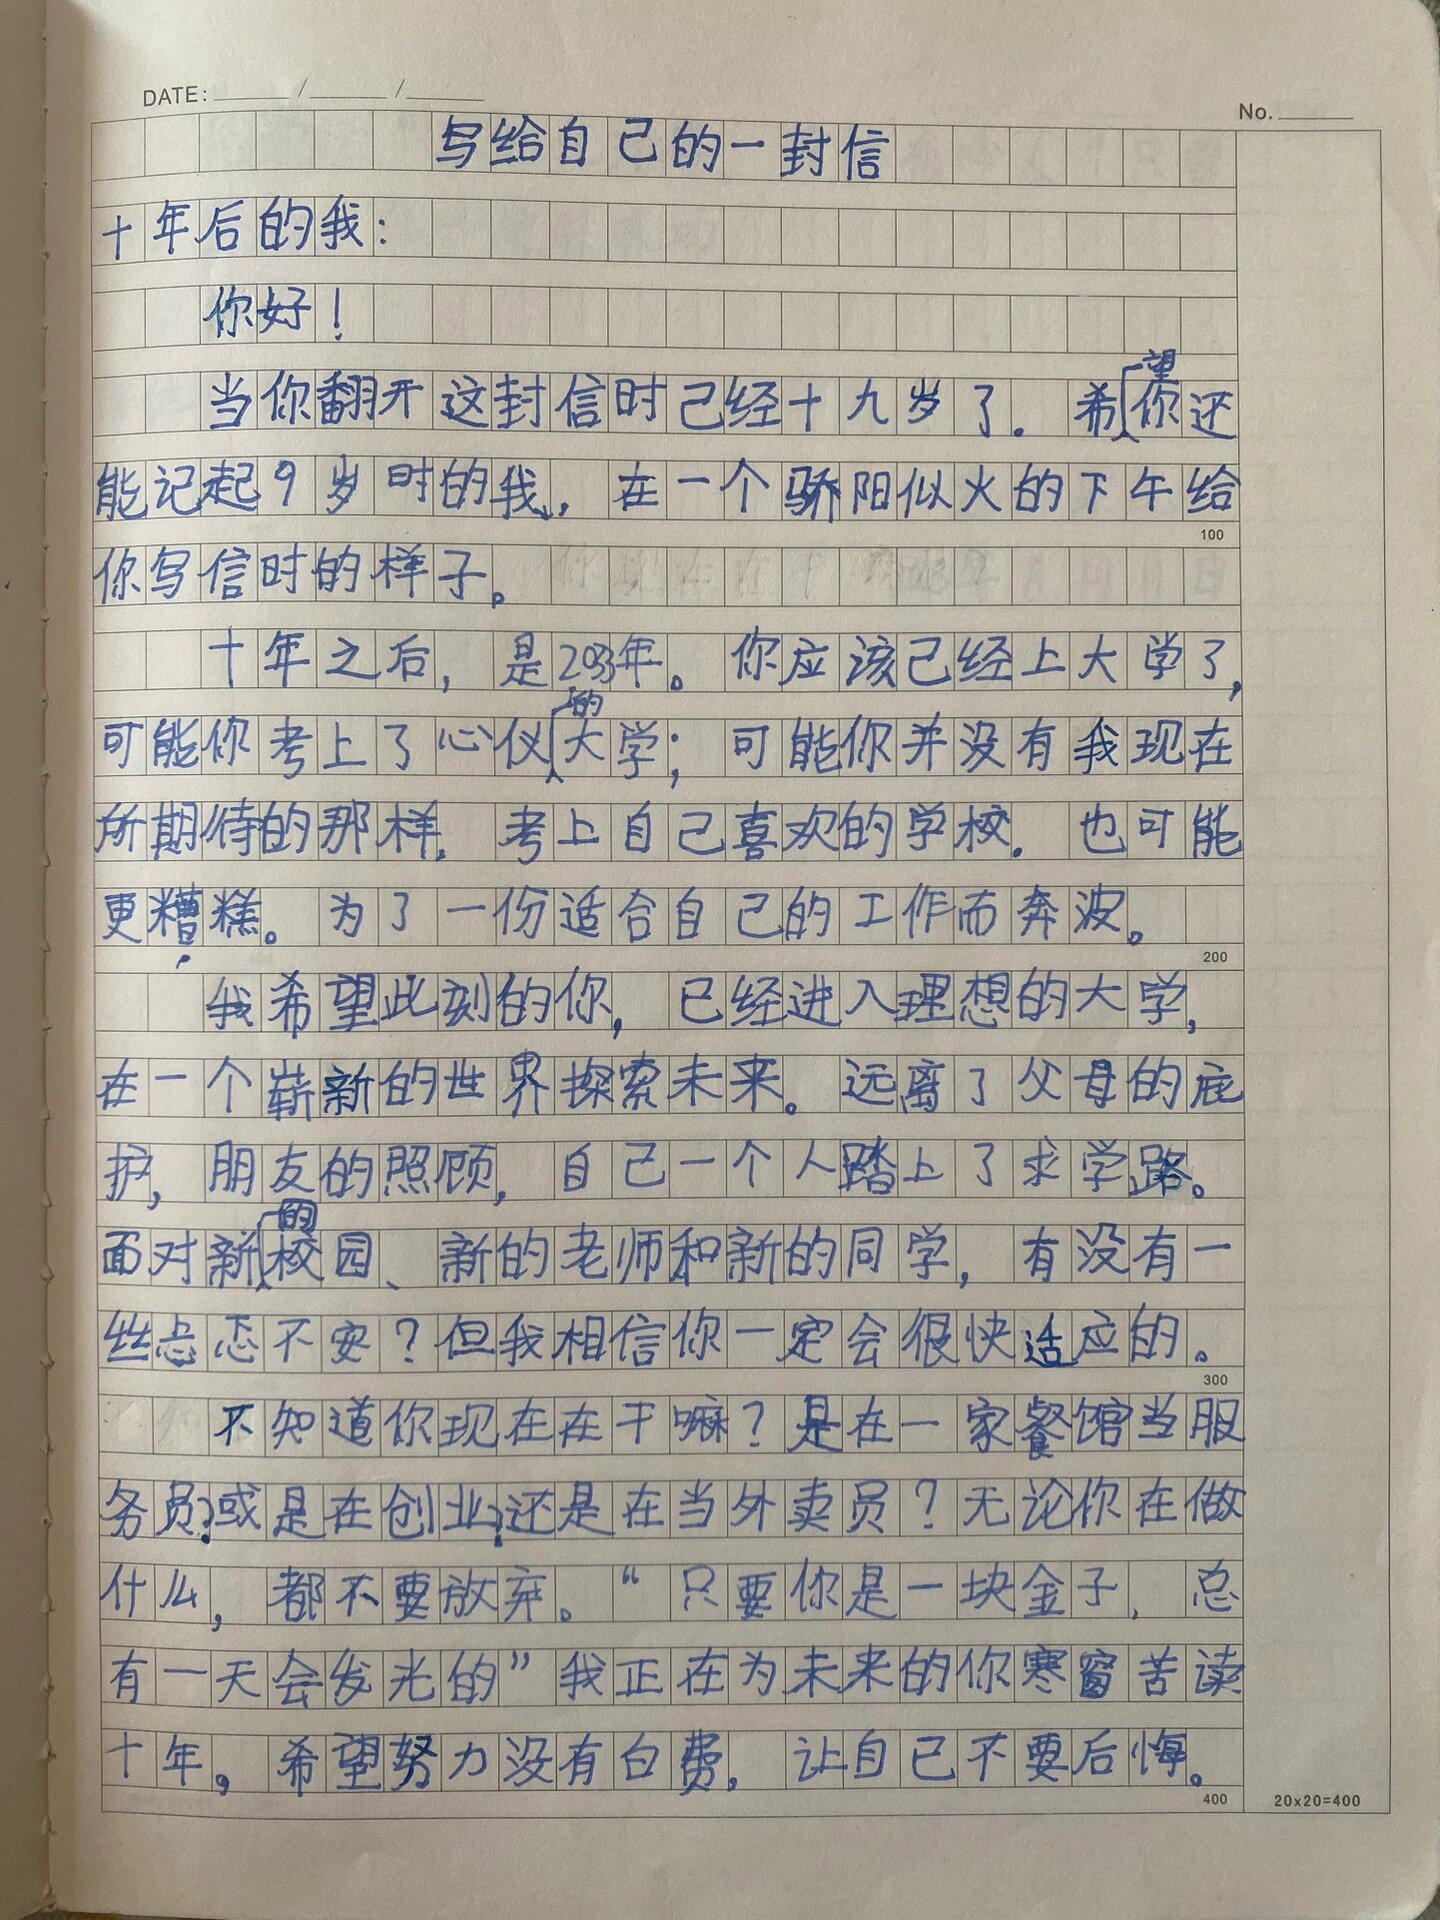 DATE: / /
No.
写给自己的一封信
十年后的我：
你好！
当你翻开这封信时已经十九岁了．希望你还
能记起9岁时的我，在一个骄阳似火的下午给
100
你写信时的样子。
十年之后，是2033年。你应该已经上大学了，
可能你考上了心仪的大学；可能你并没有我现在
所期待的那样，考上自己喜欢的学校．也可能
更糟糕。为了一份适合自己的工作而奔波。
200
我希望此刻的你，已经进入理想的大学，
在一个崭新的世界探索未来。远离了父母的庇
护，朋友的照顾，自己一个人踏上了求学路。
面对新的校园、新的老师和新的同学，有没有一
丝忐忑不安？但我相信你一定会很快适应的。
300
不知道你现在在干嘛？是在一家餐馆当服
务员？或是在创业？还是在当外卖员？无论你在做
什么，都不要放弃。“只要你是一块金子，总
有一天会发光的”我正在为未来的你寒窗苦读
十年。希望努力没有白费，让自己不要后悔。
400
20x20=400